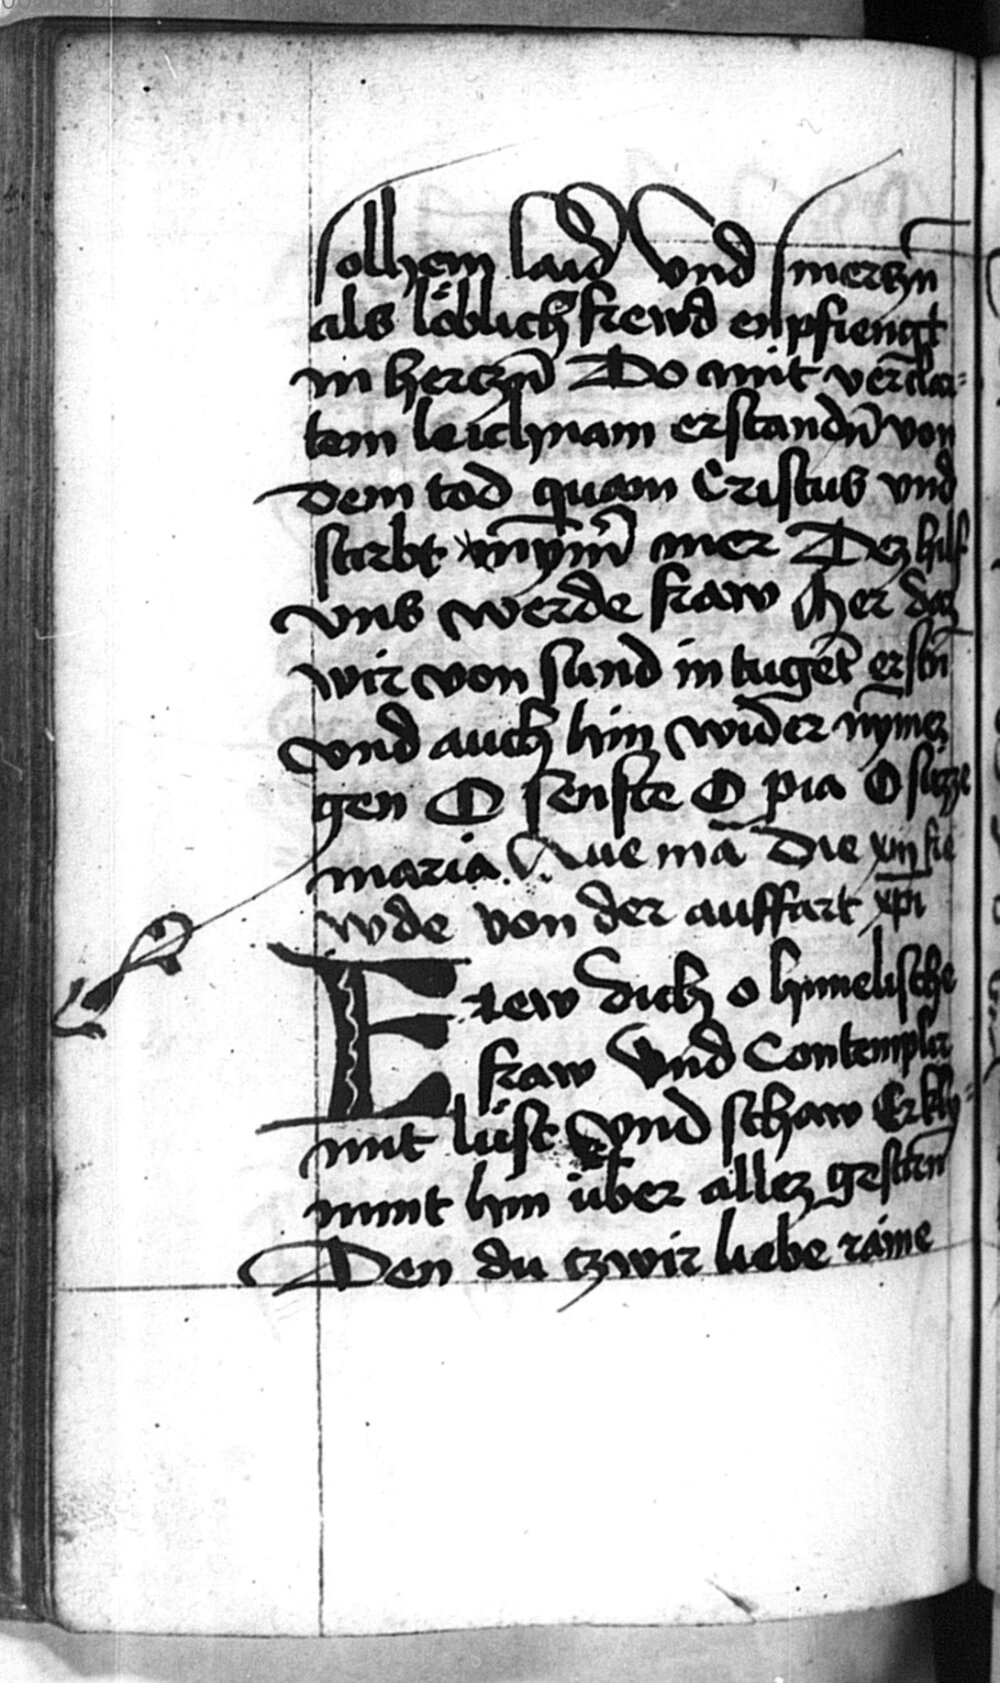 solhem laid Vnd smerczn̄
als löblich frewd enpfiengt
in herczn̄ Do mit verclar=
tem leichnam erstandn̄ von
dem tod quam Cristus vnd
stirbt nÿm̄ mer Dez hilf
vns werde fraw her daz
wir von sund in tugēt erstn̄
vnd auch hin wider nȳmer
gen O senfte O pia O suzze
maria Aue mā Die xiiij fre
wde von der auffart xp̄i
Frew dich o himelische
fraw Vnd Contemplir
mit lüst vnd schaw Er
nimt hin über allez gestirn
Den du zwir liebe raine